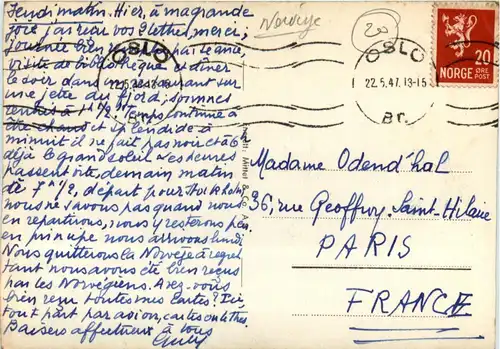 Jeudi matin. Hier, à ma grande
joie j'ai reçu vos 2 lettres, merci,
journée bien
visite de bibliothèque et dîner
le soir dans restaurant sur
une jetée du fjord, sommes
rentrés à 11 h 1/2. Temps continue à
être chaud et splendide à
minuit il ne fait pas noir et à 6
déjà le grand soleil. Les heures
passent vite, demain matin
de 7 h 1/2, départ pour Stockholm,
nous ne savons pas quand nous
en repartirons, nous y resterons peu
en principe nous arrivons lundi
Nous quitterons la Norvège à regret
tant nous avons été bien reçus
par les Norvégiens. Avez-vous
bien reçu toutes mes cartes? Ici,
tout part par avion, cartes ou lettres.
Baisers affectueux à vous
Norvège
20
OSLO
22.5.47.13-15
Br.
OSLO
22.5.47.13-15
Br.
20
NORGE ØRE
POST
Mittet & Co. A
Madame Odend'hal
36, rue Geoffroy-Saint-Hilaire
PARIS
FRANCE